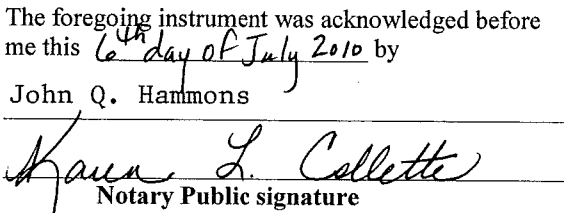 The foregoing instrument was acknowledged before
me this 6th day of July 2010 by
John Q. Hammons
Karen L. Collette
Notary Public signature